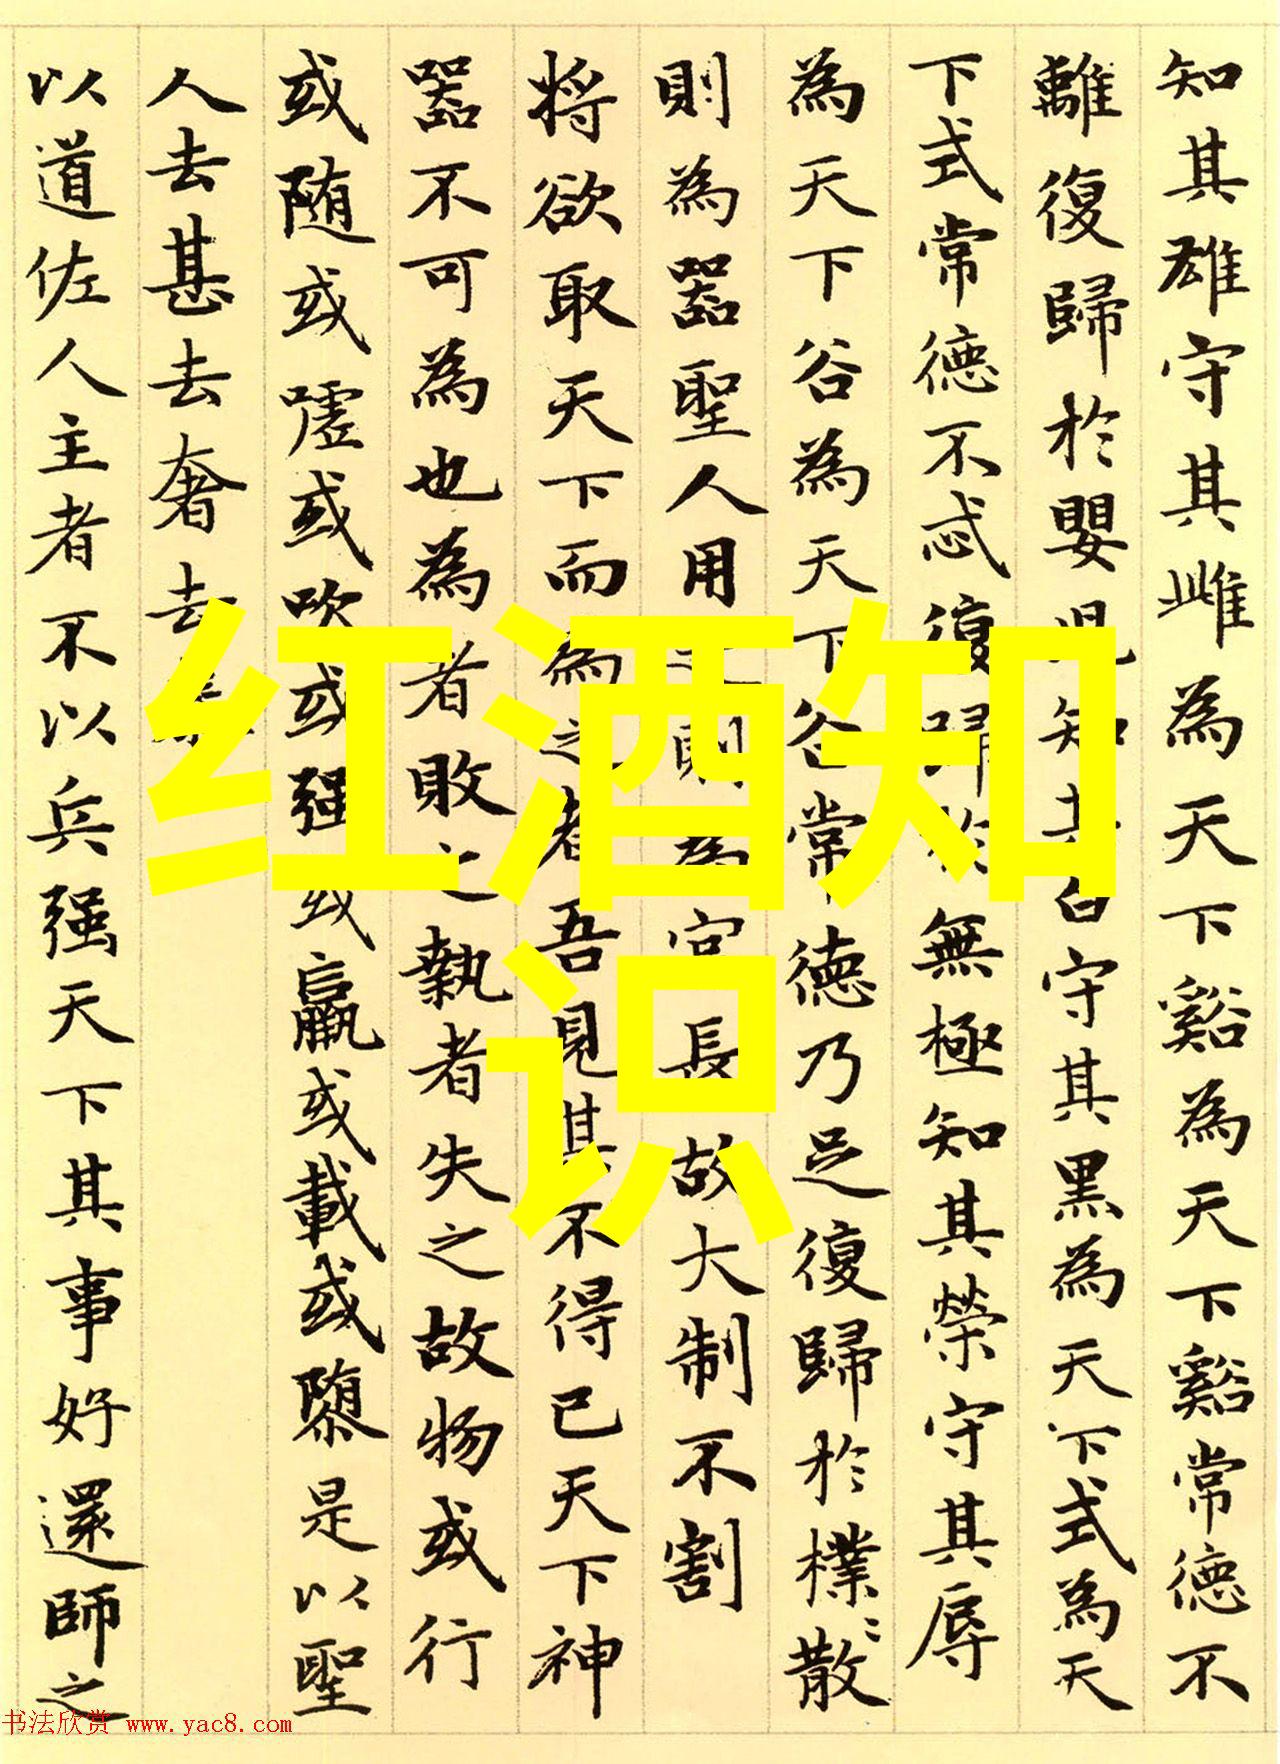 知其雄守其雌為天下谿為天下谿常德不
離復歸於嬰兒知其白守其黑為天下式為天
下式常德不忒復歸於無極知其榮守其辱
為天下谷為天下谷常德乃足復歸於樸樸散
則為器聖人用之則為官長故大制不割
将欲取天下而為之者吾見其不得已天下神
器不可為也為者敗之執者失之故物或行
或随或噓或吹或强或羸或載或隳是以聖
人去甚去奢去
以道佐人主者不以兵强天下其事好還師之
红酒知
识
书法欣赏 www.yac8.com